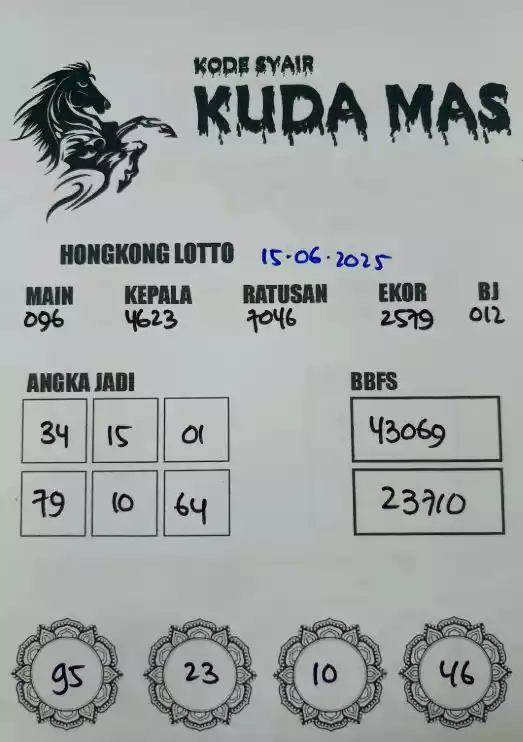 KODE SYAIR
KUDA MAS
HONGKONG LOTTO 15.06.2025
MAIN KEPALA RATUSAN EKOR BJ
096 4623 7046 2579 012
ANGKA JADI BBFS
34 15 01 43069
79 10 64 23710
95 23 10 46